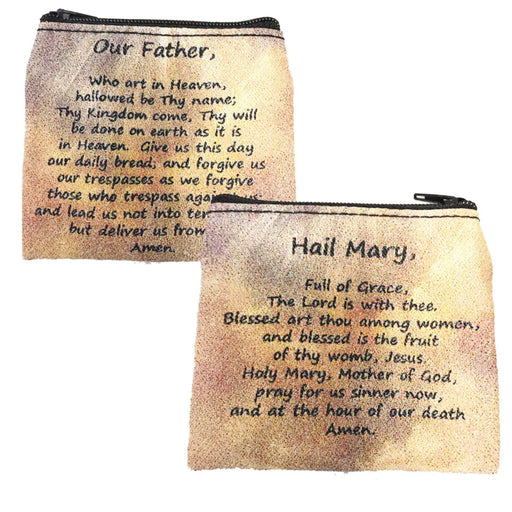 Our Father,
Who art in Heaven,
hallowed be Thy name;
Thy Kingdom come, Thy will
be done on earth as it is
in Heaven. Give us this day
our daily bread; and forgive us
our trespasses as we forgive
those who trespass
and lead us not into
but deliver us from
Amen.
Hail Mary,
Full of Grace,
The Lord is with thee.
Blessed art thou among women,
and blessed is the fruit
of thy womb, Jesus.
Holy Mary, Mother of God,
pray for us sinner now,
and at the hour of our death
Amen.